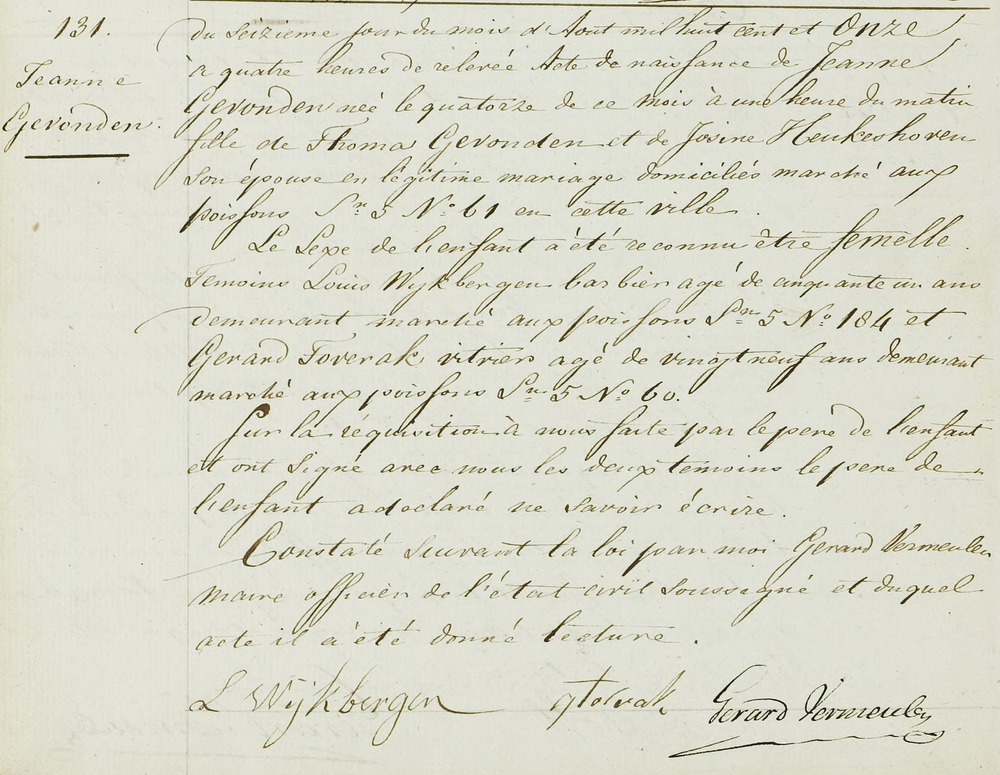 131.
Jeanne
Gevonden.
du seizieme jour du mois d'Aout mil huit cent et Onze
à quatre heures de relevée Acte de naissance de Jeanne
Gevonden neé le quatorze de ce mois à une heure du matin
fille de Thoma Gevonden et de Josine Heukeshoven
son épouse en légitime mariage domiciliés marché aux
poissons Sn 5 No 61 en cette ville.
Le Sexe de l'enfant a été reconnu être femelle.
Temoins Louis Wijkbergen barbier agé de cinquante un ans
demeurant marché aux poissons Sn 5 No 184 et
Gerard Toverak vitrier agé de vingt neuf ans demeurant
marché aux poissons Sn 5 No 60.
Sur la réquisition à nous faite par le pere de l'enfant
et ont Signé avec nous les deux temoins le pere de
l'enfant a declaré ne savoir écrire.
Constaté suivant la loi par moi Gerard Vermeulen
maire officier de l'état civil soussigné et duquel
acte il a été donné lecture.
L Wijkbergen
Gerard Vermeulen